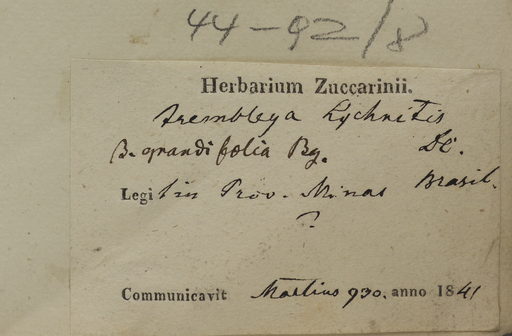 44-92/8
Herbarium Zuccarinii.
Trembleya Lychnitis
DC.
β. grandifolia Bg.
Legi t in Prov. Minas Brasil.
?
Communicavit Martius 930. anno 1841